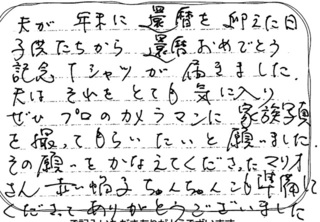 夫が 年末に 還暦を 迎えた日
子供たちから 還暦おめでとう
記念Tシャツが 届きました.
夫は それを とても 気に入り
ぜひ プロのカメラマンに 家族写真
を撮ってもらいたいと願いました.
その願いをかなえてくださったマリオ
さん 赤い帽子 ちゃんちゃんこも準備して
くださってありがとうございました